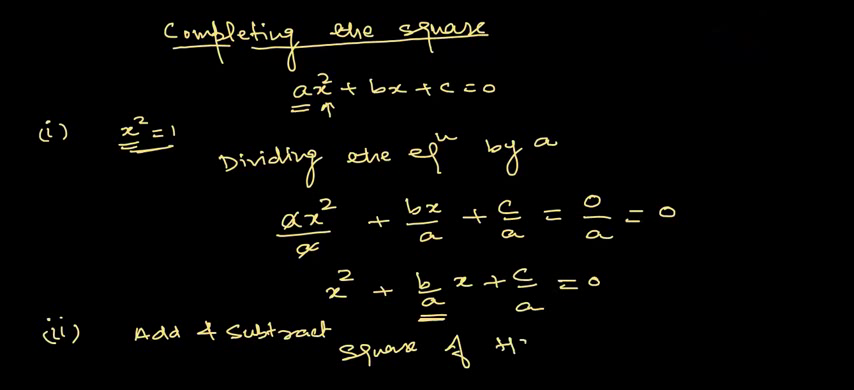 Completing the square
ax² + bx + c = 0
(i) x² = 1
Dividing the eqⁿ by a
ax²/a + bx/a + c/a = 0/a = 0
x² + b/a x + c/a = 0
(ii) Add & Subtract
square of